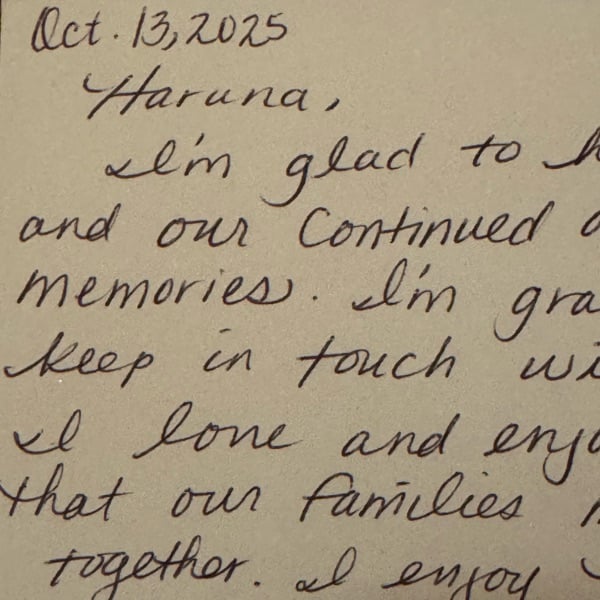 Oct. 13, 2025
Haruna,
I'm glad to
and our Continued
memories. I'm gra
keep in touch wi
I love and enjo
that our families
together. I enjoy